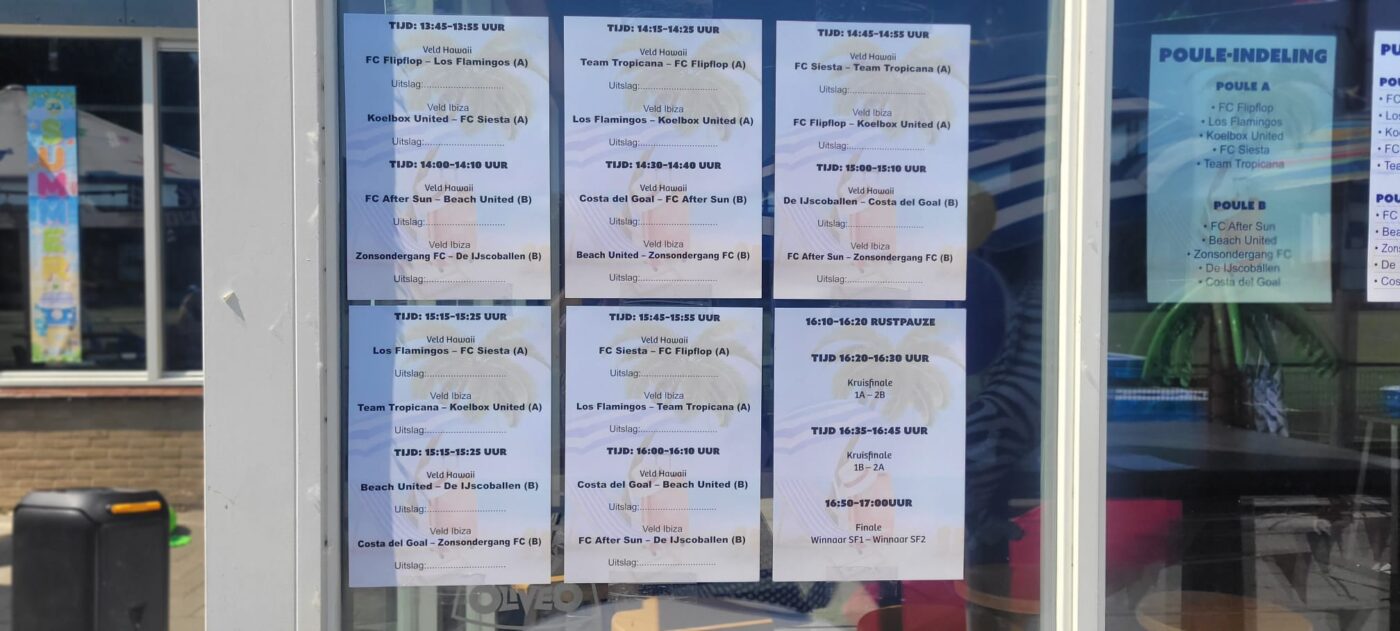 SUMMER
TIJD: 13:45-13:55 UUR
Veld Hawaii
FC Flipflop – Los Flamingos (A)
Uitslag:..............................
Veld Ibiza
Koelbox United – FC Siesta (A)
Uitslag:..............................
TIJD: 14:00-14:10 UUR
Veld Hawaii
FC After Sun – Beach United (B)
Uitslag:..............................
Veld Ibiza
Zonsondergang FC – De IJscoballen (B)
Uitslag:..............................
TIJD: 14:15-14:25 UUR
Veld Hawaii
Team Tropicana – FC Flipflop (A)
Uitslag:..............................
Veld Ibiza
Los Flamingos – Koelbox United (A)
Uitslag:..............................
TIJD: 14:30-14:40 UUR
Veld Hawaii
Costa del Goal – FC After Sun (B)
Uitslag:..............................
Veld Ibiza
Beach United – Zonsondergang FC (B)
Uitslag:..............................
TIJD: 14:45-14:55 UUR
Veld Hawaii
FC Siesta – Team Tropicana (A)
Uitslag:..............................
Veld Ibiza
FC Flipflop – Koelbox United (A)
Uitslag:..............................
TIJD: 15:00-15:10 UUR
Veld Hawaii
De IJscoballen – Costa del Goal (B)
Uitslag:..............................
Veld Ibiza
FC After Sun – Zonsondergang FC (B)
Uitslag:..............................
TIJD: 15:15-15:25 UUR
Veld Hawaii
Los Flamingos – FC Siesta (A)
Uitslag:..............................
Veld Ibiza
Team Tropicana – Koelbox United (A)
Uitslag:..............................
TIJD: 15:15-15:25 UUR
Veld Hawaii
Beach United – De IJscoballen (B)
Uitslag:..............................
Veld Ibiza
Costa del Goal – Zonsondergang FC (B)
Uitslag:..............................
TIJD: 15:45-15:55 UUR
Veld Hawaii
FC Siesta – FC Flipflop (A)
Uitslag:..............................
Veld Ibiza
Los Flamingos – Team Tropicana (A)
Uitslag:..............................
TIJD: 16:00-16:10 UUR
Veld Hawaii
Costa del Goal – Beach United (B)
Uitslag:..............................
Veld Ibiza
FC After Sun – De IJscoballen (B)
Uitslag:..............................
16:10-16:20 RUSTPAUZE
TIJD 16:20-16:30 UUR
Kruisfinale
1A – 2B
TIJD 16:35-16:45 UUR
Kruisfinale
1B – 2A
16:50-17:00UUR
Finale
Winnaar SF1 – Winnaar SF2
OLVEO
POULE-INDELING
POULE A
• FC Flipflop
• Los Flamingos
• Koelbox United
• FC Siesta
• Team Tropicana
POULE B
• FC After Sun
• Beach United
• Zonsondergang FC
• De IJscoballen
• Costa del Goal